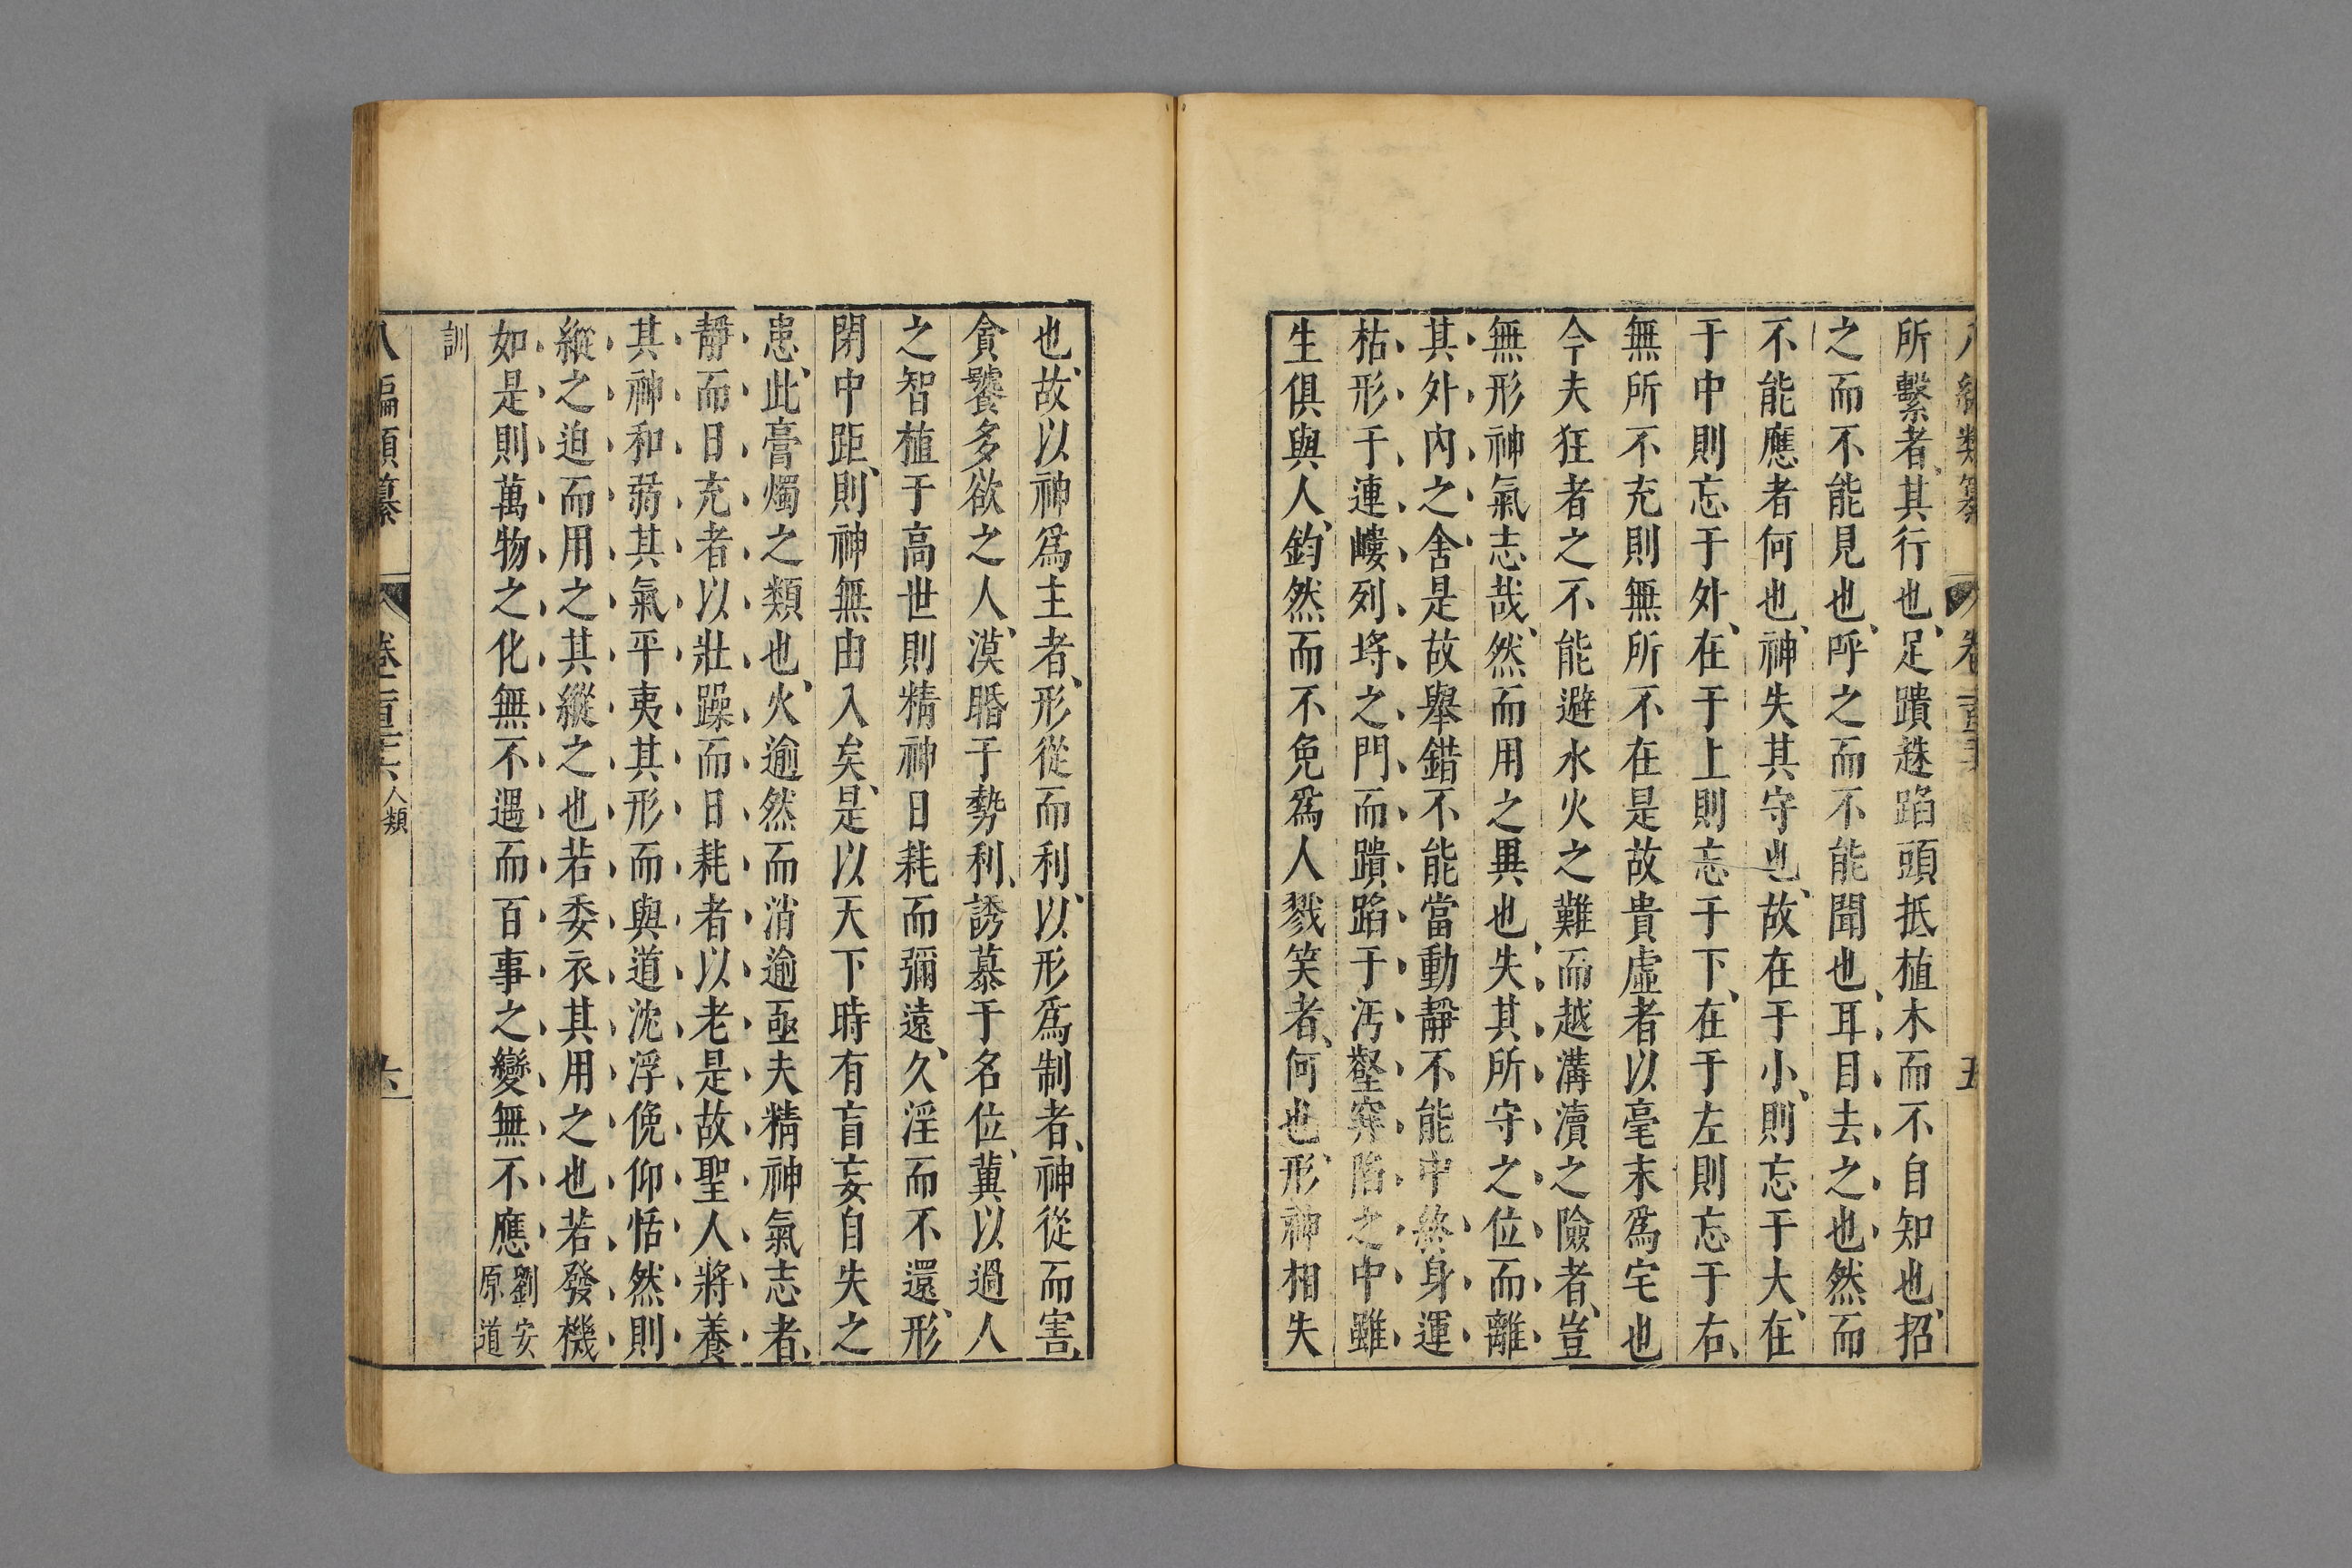 所繫者其行也足蹪趎蹈頭抵植木而不自知也招
之而不能見也呼之而不能聞也耳目去之也然而
不能應者何也神失其守也故在于小則忘于大在
于中則忘于外在于上則忘于下在于左則忘于右
無所不充則無所不在是故貴虛者以毫末爲宅也
今夫狂者之不能避水火之難而越溝瀆之險者豈
無形神氣志哉然而用之異也失其所守之位而離
其外內之舍是故舉錯不能當動靜不能中終身運
枯形于連嶁列埒之門而蹪蹈于污壑穽陷之中雖
生俱與人鈞然而不免爲人戮笑者何也形神相失
也故以神爲主者形從而利以形爲制者神從而害
貪饕多欲之人漠睧于勢利誘慕于名位冀以過人
之智植于高世則精神日耗而彌遠久淫而不還形
閉中距則神無由入矣是以天下時有盲妄自失之
患此膏燭之類也火逾然而消逾亟夫精神氣志者
靜而日充者以壯躁而日耗者以老是故聖人將養
其神和蒻其氣平夷其形而與道沈浮俛仰恬然則
縱之迫而用之其縱之也若委衣其用之也若發機
如是則萬物之化無不遇而百事之變無不應劉安原道
訓
八編類纂 卷二百三十六 人類 六